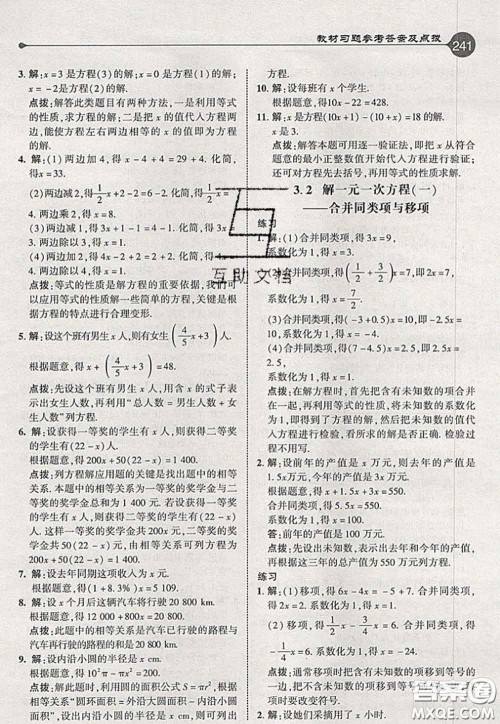 教材习题参考答案及点拨
241
3. 解：x=3是方程(3)的解；x=0是方程(1)的解；
x=-2是方程(2)的解.
点拨：解答此类题目有两种方法，一是利用等式
的性质，求方程的解；二是把x的值代入方程两
边，能使方程左右两边相等的x的值即为方程
的解.
4. 解：(1)两边加4，得x-4+4=29+4. 化简，
(2)两边减2，得
4. 两边除以
4. 两边乘2，得x=8.
(3)两边减1，得3x+1-1=4-1. 化简，得3x=
3. 两边除以3，得x=1.
2. 两边除以4，得x=
点拨：等式的性质是解方程的重要依据，我
可以应用等式的性质解一些简单的方程，关键是
根据方程的特点进行合理变形.
5. 解：设这个班有男生x人，则有女生(4/5x+3)人.
根据题意，得x+(4/5x+3)=48.
点拨：先设这个班有男生x人，用含x的式子表
示出女生人数，再利用“总人数=男生人数+女
生人数”列方程.
6. 解：设获得一等奖的学生有x人，则获得二等奖
的学生有(22-x)人.
根据题意，得200x+50(22-x)=1 400.
点拨：列方程解应用题的关键是找出题中的相等
关系，本题中的相等关系为一等奖的奖学金与二
等奖的奖学金总和为1 400元. 若设获得一等奖
的学生有x人，则获得二等奖的学生有(22-x)
人. 这样一等奖的奖学金共有200x元，二等奖的
奖学金共有50(22-x)元，由相等关系可列方程
为200x+50(22-x)=1 400.
7. 解：设去年同期这项收入为x元.
根据题意，得(1+8.3%)x=5 109.
8. 解：设x个月后这辆汽车将行驶20 800 km.
根据题意，得12 000+800x=20 800.
点拨：解此题的相等关系为已行驶的路程与
x个月行驶的路程的和是20 800 km.
9. 解：设内沿小圆的半径是x cm.
根据题意，得10²π-πx²=200.
点拨：利用圆的面积公式S=πr²，
内沿小圆的半径为x cm，
方程的解.
10. 解：设每班有x个学生.
根据题意，得10x-22=428.
11. 解：x是方程(10x+1)-(10+x)=18的解，
x是3.
点拨：解答本题可用逐一验证法，即把x从符合
题意的最小正整数值开始代入方程进行验证；
还可对方程先去括号，再用等式的性质求解.
3.2 解一元一次方程(一)
——合并同类项与移项
练习
1. 解：(1)合并同类项，得3x=9，
系数化为1，得x=3.
(2)合并同类项，得(1/2+3/2)x=7，即2x=7，
系数化为1，得x=7/2.
(3)合并同类项，得(-3+0.5)x=10，即-2.5x=
10，系数化为1，得x=-4.
(4)合并同类项，得(7-4.5)x=10，即2.5x=
系数化为1，得x=1.
点拨：在解方程时，首先把含有未知数的项合并
在一起，再利用等式的性质，将未知数的系数化
为1，解出方程. 最后要把求出的未知数的值代
入原方程进行验证，看求出的解是否正确，但检
验过程不用写出.
2. 解：设前年的产值是x万元，则去年的产值是
1.5x万元，今年的产值是3x万元.
根据题意，得x+1.5x+3x=550.
合并同类项，得5.5x=550.
系数化为1，得x=100.
答：前年的产值为100万元.
点拨：用前年的产值表示出去年和今年的产值，
再根据这三年的总产值为550万元列方程.
练习
1. 解：(1)移项，得6x-4x=-5+7. 合并同类项，得
2x=2. 系数化为1，得x=1.
(2)移项，得1/2x-3/4x=6. 合并同类项，得
-1/4x=6. 系数化为1，得x=-24.
点拨：通常移项时把含有未知数的项移到等号的
互助文档
答案圈
MXQE.COM